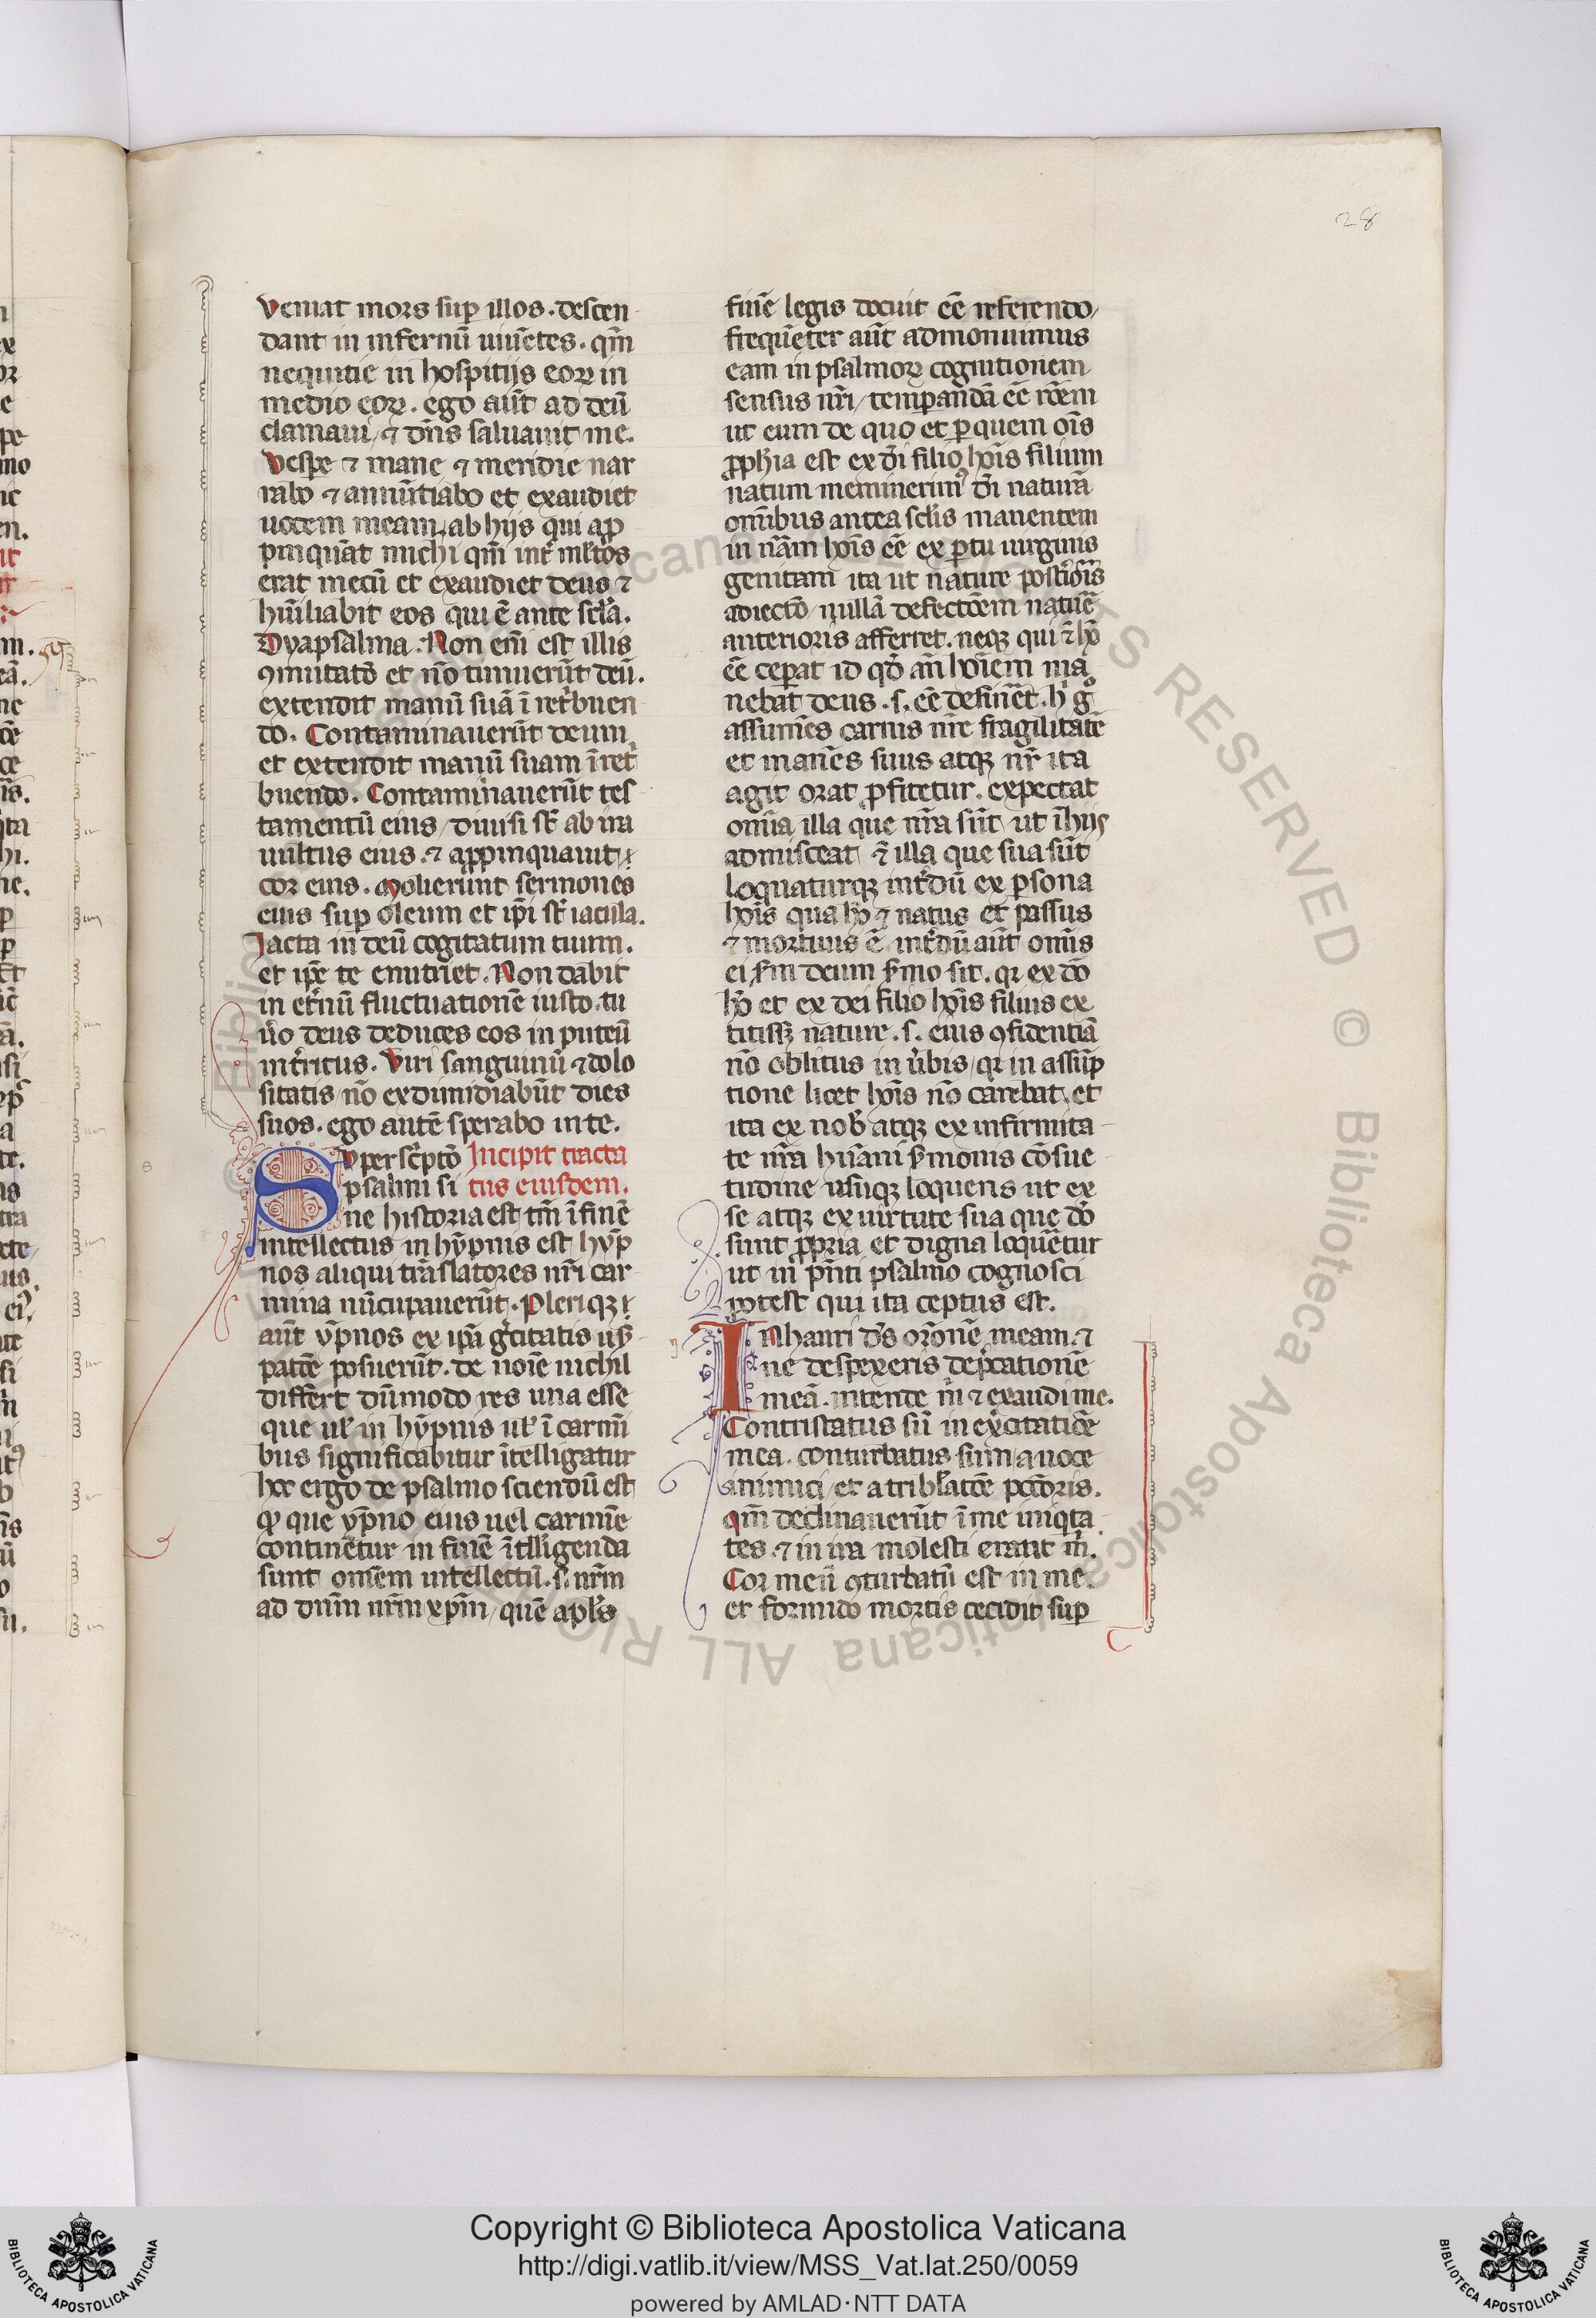 28
veniat mors sup illos. descen
dant in infernū uiuētes. qm̄
nequitie in hospitijs eoꝝ in
medio eoꝝ. ego aūt ad deū
clamaui/ ⁊ dn̄s saluauit me.
Vespe ⁊ mane ⁊ meridie nar
rabo ⁊ annūtiabo et exaudiet
uocem meam ab hijs qui apꝓ
pinquāt michi qm̄ int̄
erat mecū et exaudiet deus ⁊
hūiliabit eos qui ē ante sc̄la.
Dyapsalma. Non em̄ est illis
ꝯmutatō et nō timuerūt deū.
extendit manū suā ī ret̄buen
do. Contaminauerūt deum
et extendit manū suam ī ret̄
buendo. Contaminauerūt tes
tamentū eius/ diuisi st̄ ab ira
uultus eius. ⁊ apꝓpinquauit
cor eius. Molierunt sermones
eius sup oleum et ip̄i st̄ iacula.
Iacta in deū cogitatum tuum.
et ip̄e te enutriet. Non dabit
in et̄nū fluctuationē iusto. tu
uō deus deduces eos in puteū
int̄ritus. Viri sanguinū ⁊ dolo
sitatis nō exdimidiabūt dies
suos. ego autē sperabo in te.
Super sc̄ptō Incipit tracta
psalmi si tus eiusdem.
ne historia est tm̄ ī finē
intellectus in hȳpnis est hyp̄
nos aliqui trāslatores nr̄i car
mina nūcupauerūt. Pleriqꝫ
aūt ȳpnos ex ip̄a
posuerūt. de noīe nichil
differt dūmodo res una esse
que ul̄ in hȳpnis ul̄ ī carmī
bus significabitur ītelligatur
hoc ergo de psalmo sciendū est
ꝙ que ȳpno eius uel carmīe
continētur in finē ītelligenda
sunt om̄em intellectū. s. nr̄m
ad dn̄m nr̄m xp̄m/ quē apl̄s
finē legis docuit eē referendo/
frequēter aūt admonuimus
eam in psalmoꝝ cognitionem
sensus nr̄i/ temperandā eē rōem
ut eum de quo et ꝑ quem oīs
ꝓph̄ia est ex dī filio hoīs filium
natum meminerimꝰ dī naturā
om̄ibus antea sclīs manentem
in nām hoīs eē ex ꝑtu uirginis
genitam ita ut nature
adiectō nullā defectōem natuē
anterioris afferret. neqꝫ qui ī hō
eē ceperat id qd̄ an̄ hoīem ma
nebat deus. s. eē desinēt. h̄ gͦ
assumēs carnis nr̄e fragilitatē
et manēs suus atqꝫ nr̄ ita
agit orat ꝓfitetur. expectat
om̄ia illa que nr̄a sūt ut ī hijs
admisceat ⁊ illa que sua sūt
loquaturqꝫ int̄dū ex ꝑsona
hoīs qua hō ⁊ natus et passus
⁊ mortuus ē. int̄dū aūt om̄is
ei s̄m deum s̄mo sit. qr ex dō
hō et ex dei filio hoīs filius ex
titissꝫ nature. s. eius ꝯfidentiā
nō oblitus in ūbis/ qr in assūp
tione licet hoīs nō carebat. et
ita ex nob̄ atqꝫ ex infirmita
te nr̄a hūani s̄monis cōsue
tudine usuqꝫ loquens ut ex
se atqꝫ ex uirtute sua que dō
sunt ꝓpria et digna loquētur
ut in p̄nti psalmo cognosci
potest qui ita ceptus est.
Exhauri ds̄ orōnē meam. ⁊
ne despexeris dep̄cationē
meā. intende m̄ ⁊ exaudi me.
Contristatus sū in exc̄itatiōe
mea. conturbatus sum a uoce
inimici/ et a tribl̄atōe pct̄oris.
qm̄ declinauerūt ī me iniqta
tes. ⁊ in ira molesti erant m̄.
Cor meū ꝯturbatū est in me.
et formido mortis cecidit sup
Copyright © Biblioteca Apostolica Vaticana
http://digi.vatlib.it/view/MSS_Vat.lat.250/0059
powered by AMLAD·NTT DATA
BIBLIOTECA APOSTOLICA VATICANA
BIBLIOTECA APOSTOLICA VATICANA